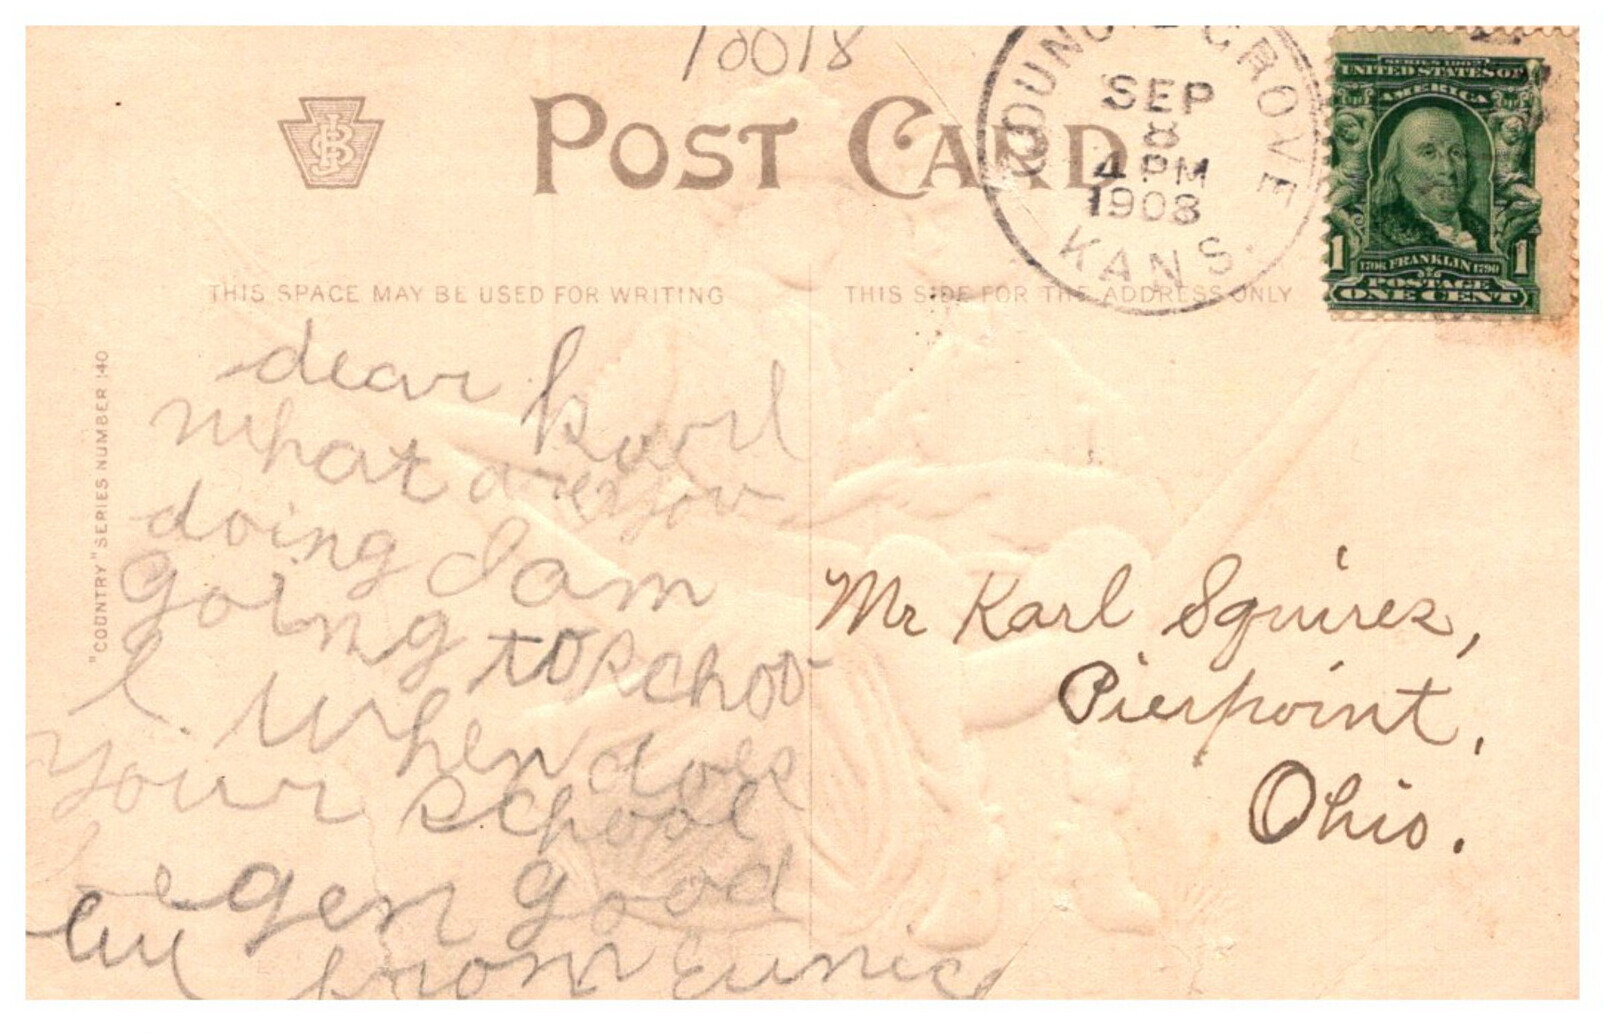 10018
POST CARD
COUNCIL GROVE
SEP
8
4 PM
1908
KANS.
SERIES 1902
UNITED STATES OF
AMERICA
1 1706 FRANKLIN 1790 1
POSTAGE
ONE CENT
THIS SPACE MAY BE USED FOR WRITING
THIS SIDE FOR THE ADDRESS ONLY
"COUNTRY" SERIES NUMBER 140
dear Karl
what are you
doing I am
going to schoo
l when does
your school
begen good
by from Eunice
Mr Karl Squires,
Pierpoint,
Ohio.